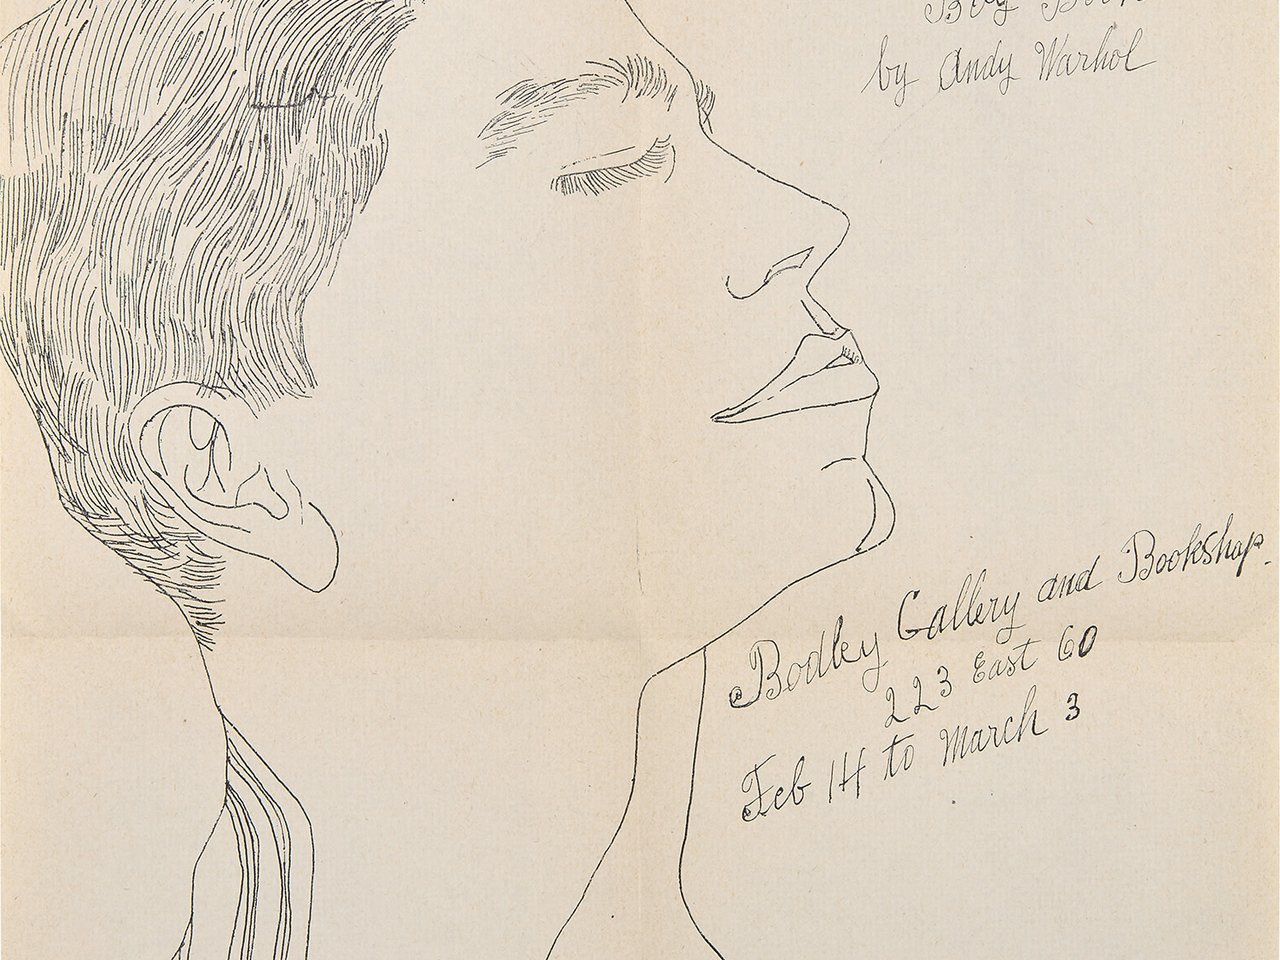 Boy Book
by Andy Warhol
Bodley Gallery and Bookshop.
223 East 60
Feb 14 to March 3